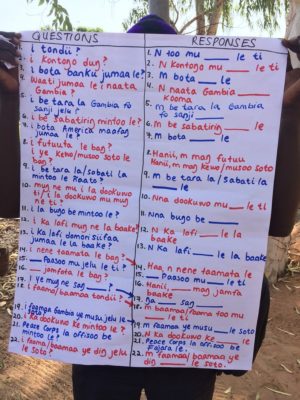 QUESTIONS
1. i tondii?
2. i Kontoŋo duŋ?
3. i bota banku jumaa le?
4. Waati jumaa le i naata
Gambia?
5. i be tara la Gambia fo
sanji jelu?
6. i be sabatiriŋ mintoo le?
7. i bota America maafaŋ
jumaa le?
8. i futuuta le baŋ?
i ye kewo/musoo soto le
baŋ?
9. i be tara la/sabati la
mintoo le
10. muŋ ne mu i la dookuwo
ti/i la dookuwo mu muŋ
ne ti?
11. i la bugo be mintoo le?
12. i ka lafi muŋ ne la baake?
13. i ka lafi domori siifaa
jumaa le la baake?
14. i nene taamata le baŋ?
15. Paasoo mu jelu le ti?
16. jamfata le baŋ?
17. i ye muŋ ne saŋ
18. i faama/baamaa tondii?
19. i faamaa Gambia ye musu jelu le
soto?
20. i ka dookuwo ke mintoo le?
21. Peace Corps la offisoo be
mintoo le?
22. i faamaa/baamaa ye diŋ jelu
le soto?
RESPONSES
1. N too mu ___ le ti
2. N Kontoŋo mu ___ le ti
3. M bota ___ le
4. N naata Gambia
Kooma
5. m be tara la Gambia
fo sanji ___
6. M be sabatiriŋ ___ le
7. M bota ___ le
8. Hanii, m maŋ futuu
Hanii, m maŋ kewo/musoo soto
9. m be tara la/sabati la
___ le
10. Nna dookuwo mu ___ le ti
11. Nna bugo be ___
12. N ka lafi ___ le la
baake
13. N Ka lafi ___ le la baake
14. Haa, n nene taamata le
15. Paasoo mu ___ le ti
16. Hanii, ___ maŋ jamfa
baake
17. ___ saŋ
18. m baamaa/faama too mu
___ le ti
19. m faamaa ye musu ___ le soto
20. N ka dookuwo ke ___ le
21. Peace Corps la offisoo be
Fajara le.
22. m faamaa/baamaa ye
diŋ ___ le soto.